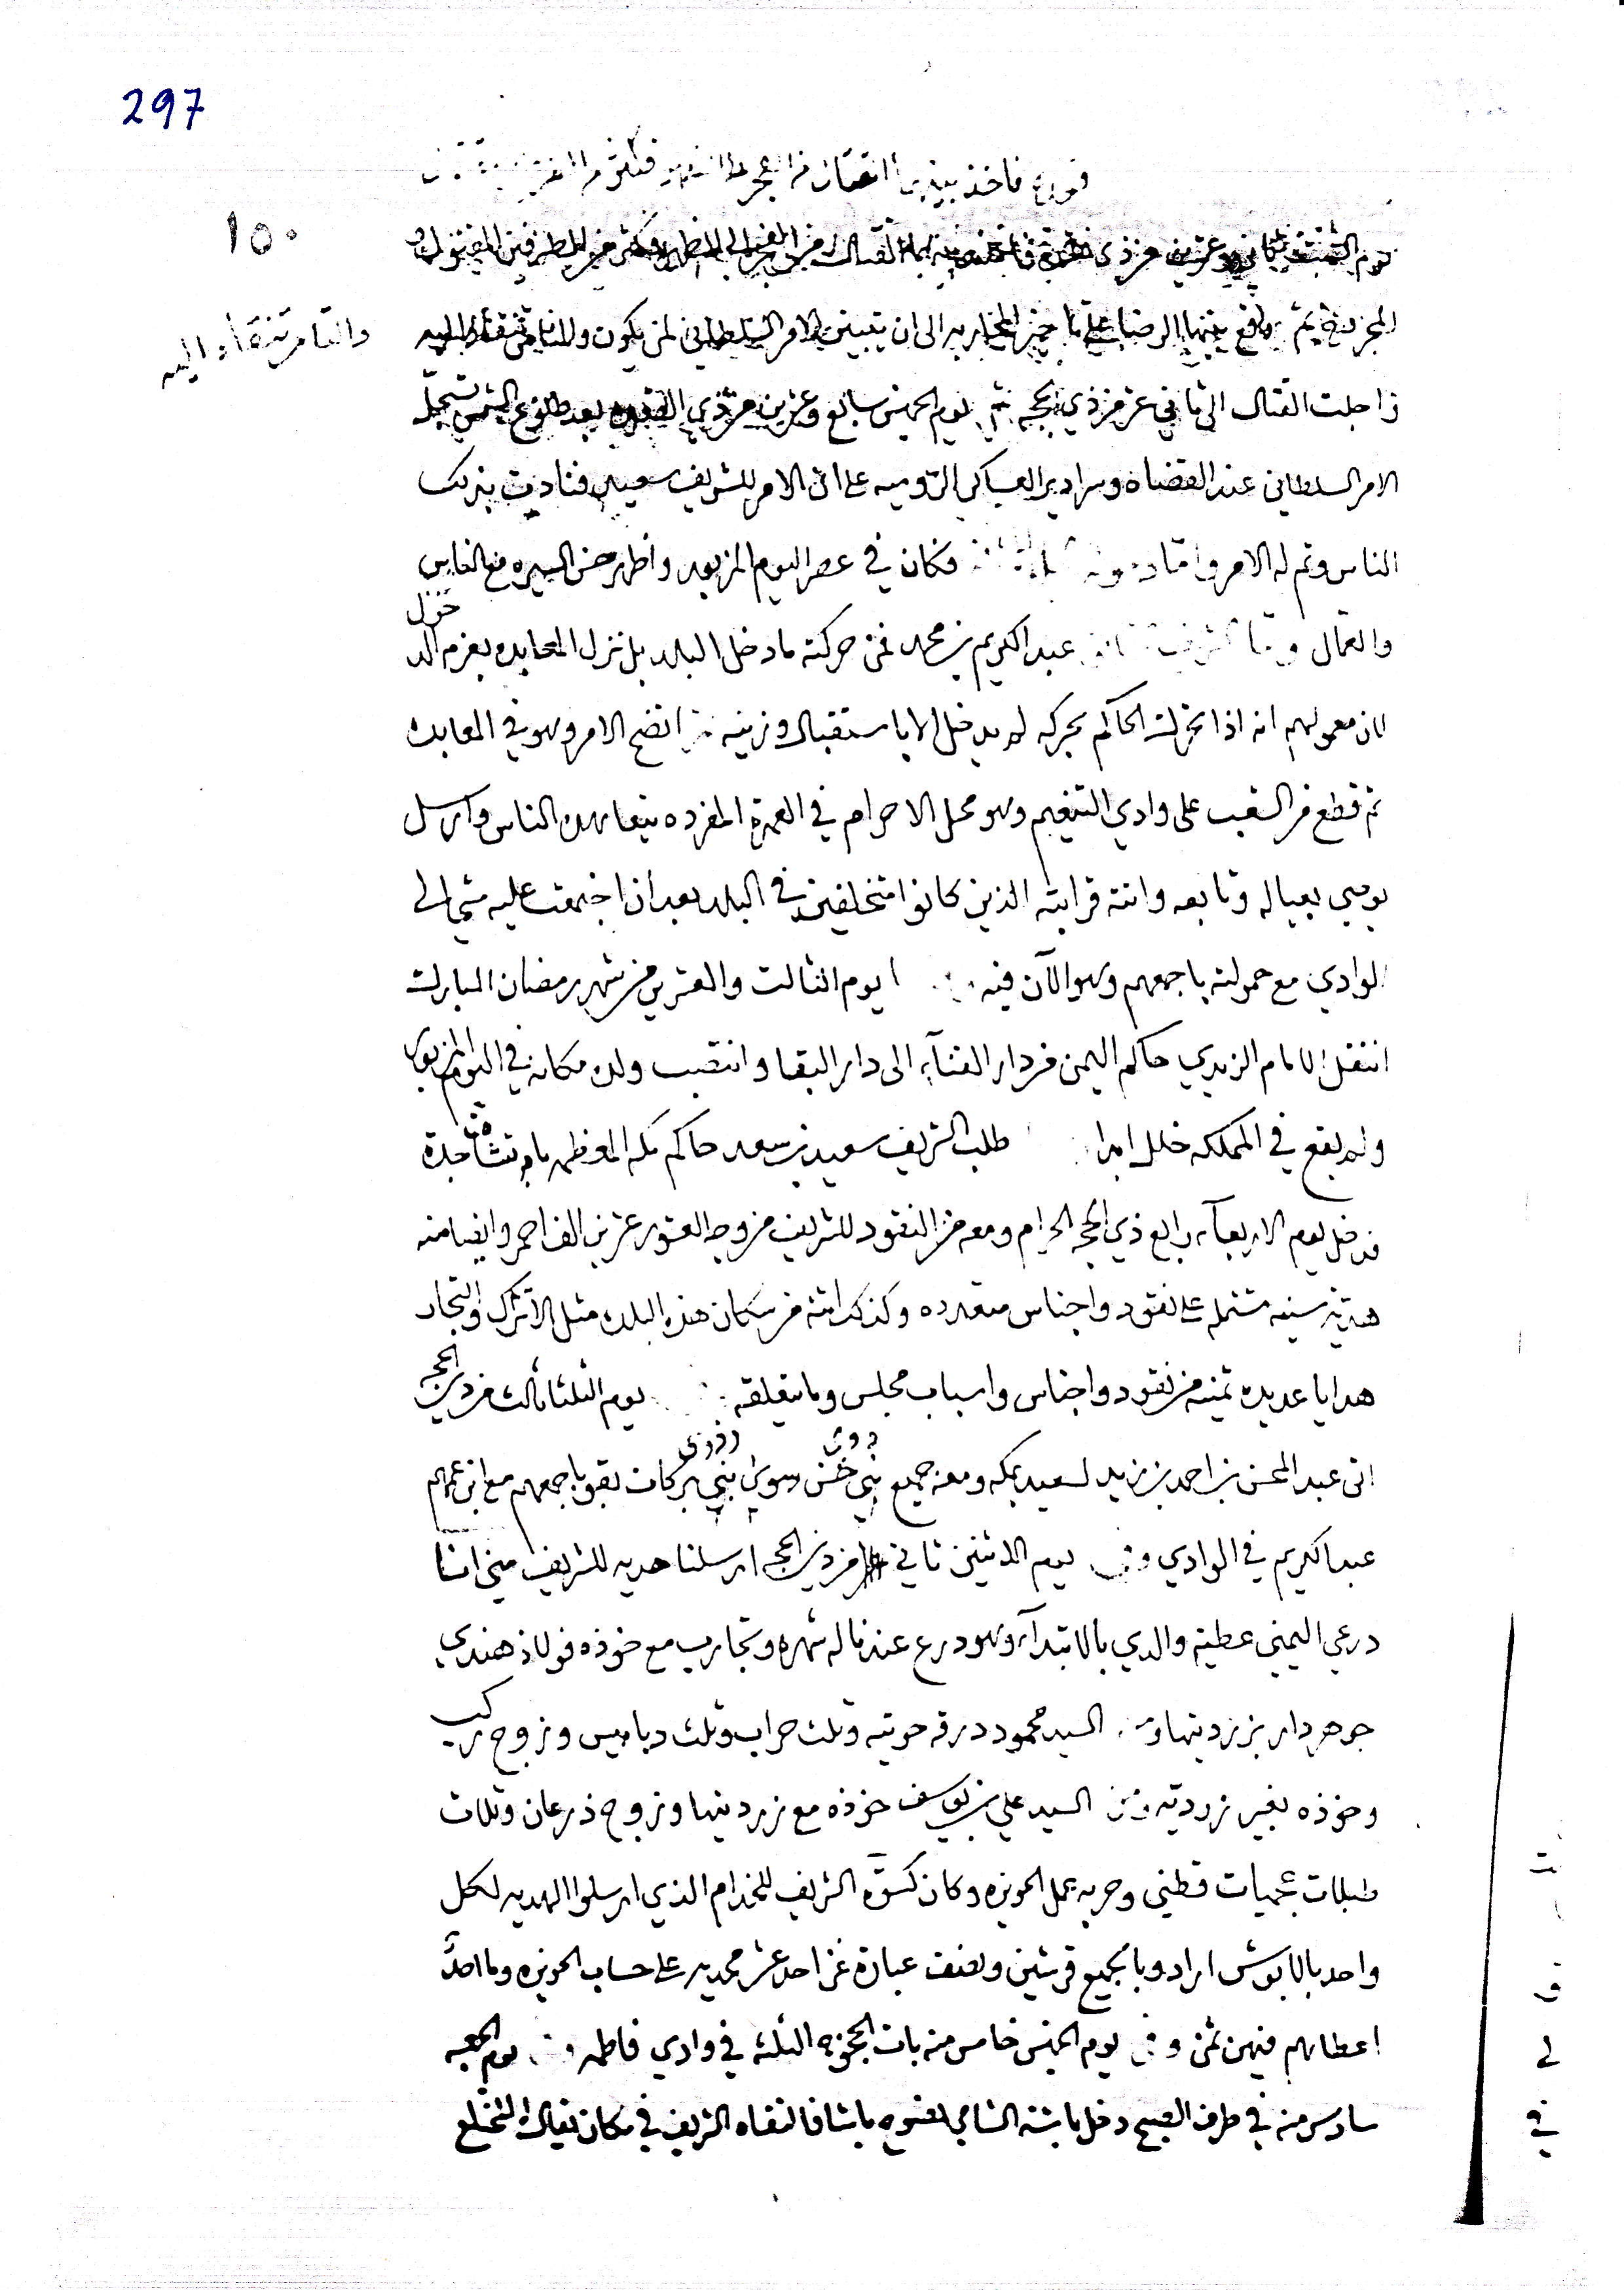 297
١٥٠
فاخذ بينهما القتال من الفجر الى الظهر
يوم السبت ثاني وعشرين من ذي القتال من الفجر الى الظهر وكثر من الطرفين المقتول و
المجروح ثم وقع بينهما الرضا على تأخير المحاربه الى ان يتبين الامر السلطاني لمن يكون والناس تنقاد اليه
والناس تنقاد اليه
فاجلت القتال الى ثاني عشر من ذي الحجه ثم يوم الخميس سابع وعشرين من ذي القعده بعد طلوع الشمس تسجل
الامر السلطاني عند القضاه وسرادير العساكر الروميه على ان الامر للشريف سعيد فنادت بذلك
الناس وتم له الامر واما فكان في عصر اليوم المزبور واظهر حسن السيره مع الناس
والعمال عبد الكريم بن محمد فمن حركته ما دخل البلد بل نزل المعابده بعزم الدخول
لان معمولهم انه اذا تحرك الحاكم بحركه لم يدخل الا باستقبال وزينه اتضح الامر وهو في المعابده
ثم قطع من الشعب على وادي التنعيم وهو محل الاحرام في العمرة المفرده يتعاهده الناس وارسل
يوصي بعياله وتابعه واتته قرابته الذين كانوا متخلفين في البلد بعد ان اجتمعت عليه مشى الى
الوادي مع حمولته باجمعهم وهو الآن فيه يوم الثالث والعشرين من شهر رمضان المبارك
انتقل الامام الزيدي حاكم اليمن من دار الفنآء الى دار البقا وانتصب ولده مكانه في اليوم المزبور
ولم يقع في المملكه خلل ابدا طلب الشريف سعيد بن سعد حاكم مكه المعظمه باشة جدة
فدخل يوم الاربعآء رابع ذي الحجه الحرام ومعه من النقود للشريف من وجه العشور عشرين الف احمر وايضا منه
هديه سنيه مشتمله على نقود واجناس متعدده وكذلك اتته من سكان هذه البلده مثل الأتراك والتجار
هدايا عديده ثمينه من نقود واجناس واسباب مجلس وما يتعلقه يوم الثلثا ثالث من ذي الحجه
اتى عبد المحسن بن احمد بن زيد لسعيد بمكه ومعه جميع ذوي بني حسن سوى ذوي بني بركات بقوا باجمعهم مع ابن عمهم
عبد الكريم في الوادي وفي يوم الاثنين ثاني من ذي الحجه ارسلنا هديه للشريف مني انا
درعي اليمني عطية والدي بالابتدآء وهو درع عندنا له شهره وتجارب مع خوذه فولاذ هندي
جوهردار بزرديتها ومن السيد محمود درقه حوتيه وثلث حراب وثلث دبابيس وزوج ركب
وخوذه بغير زرديه ومن السيد علي بن يوسف خوذه مع زرديتها وزوج ذرعان وثلاث
طبلات عجميات قطني وحربه عمل الحويزه وكان كسوة الشريف للخدام الذي ارسلوا الهديه لكل
واحد بالابوش اراد وبالجميع قرشين ونصف عبارة عن احد عشر محمديه على حساب الحويزه وما احدًا
اعطاهم فيهن ثمن وفي يوم الخميس خامس منه بات الثلثه في وادي فاطمه وفي يوم الجمعه
سادس منه في طرف الصبح دخل باشة الشام نصوح باشا فالتقاه الشريف في مكان يقال المختلع